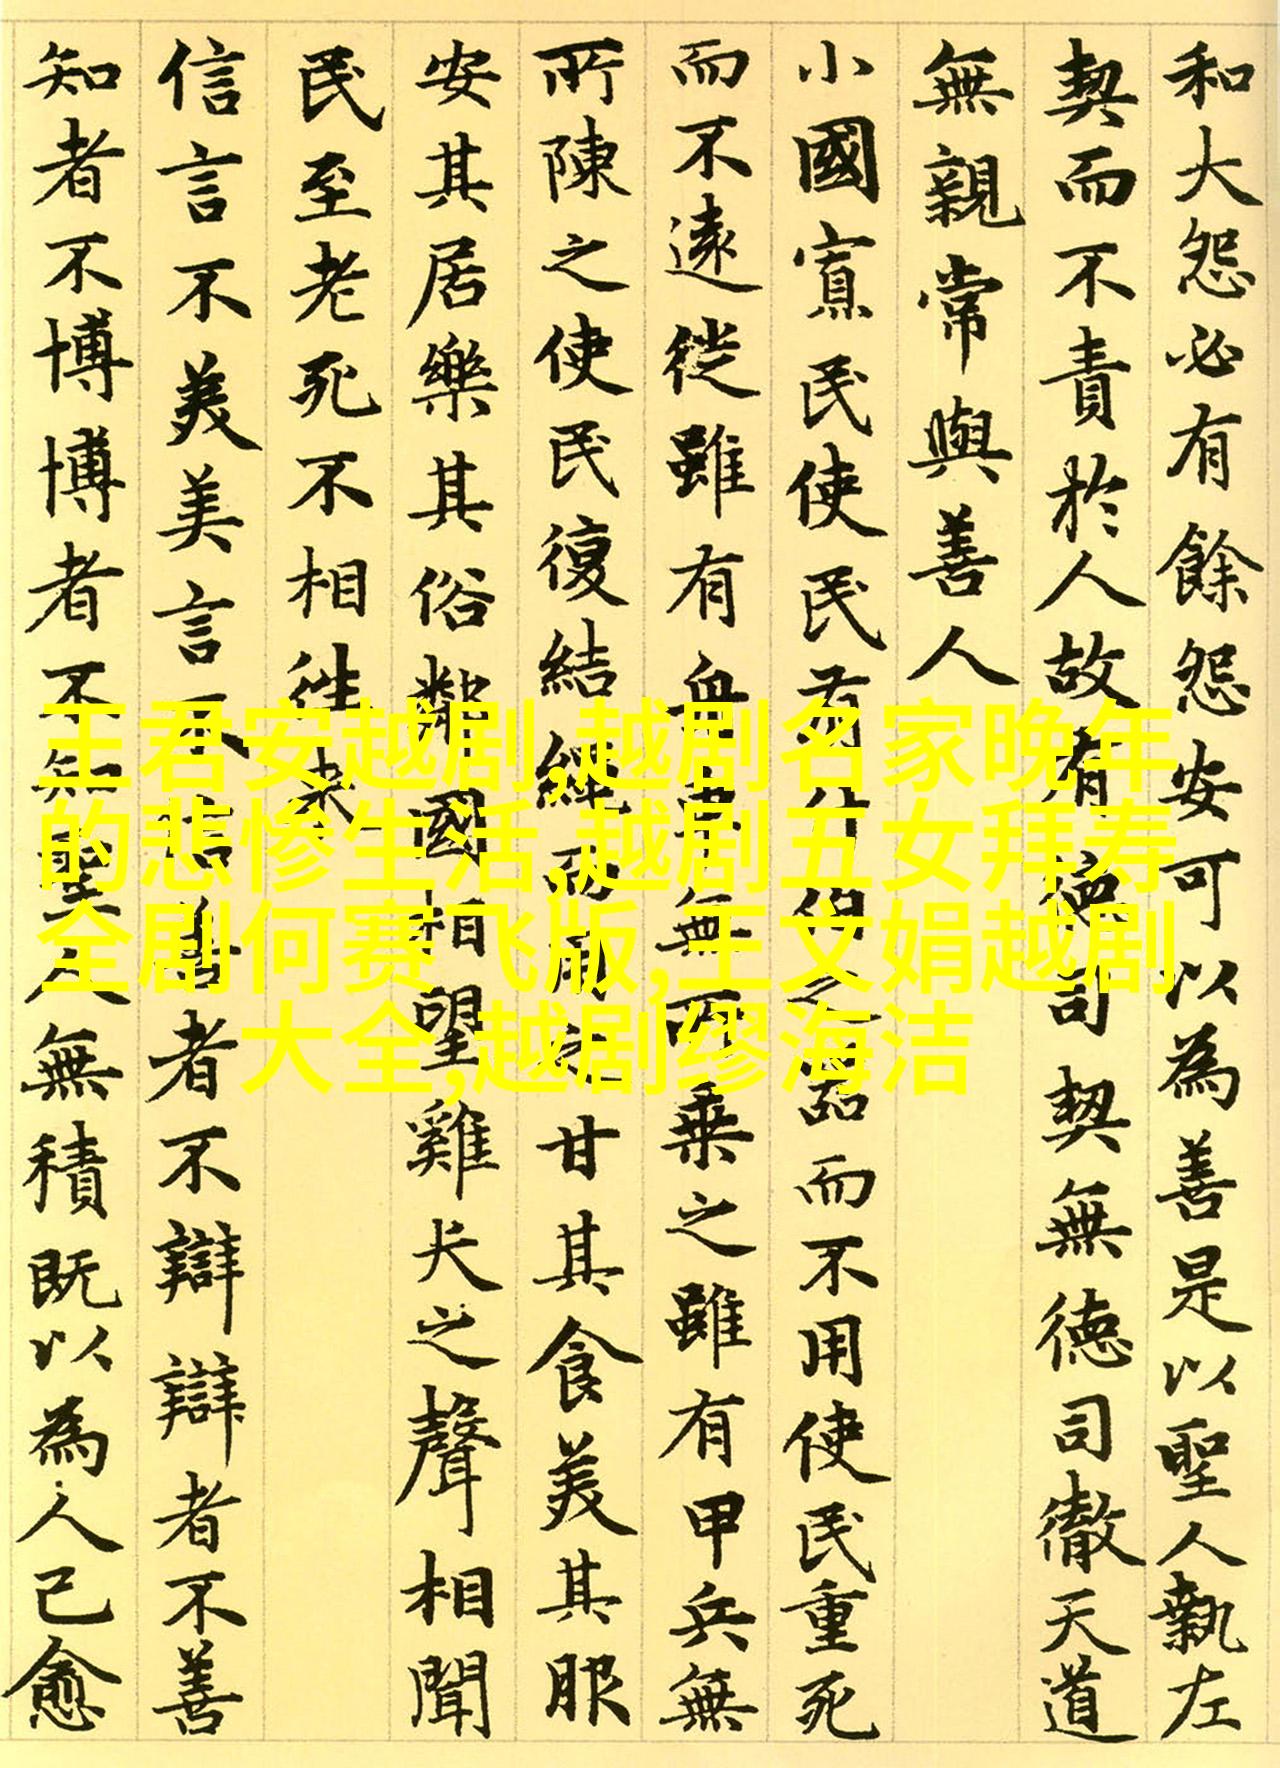 和大怨必有餘怨安可以為善是以聖人執左
契而不責於人故有德司契無德司徹天道
無親常與善人
小國寡民使民有什伯之器而不用使民重死
而不遠徙雖有舟車無所乘之雖有甲兵無
所陳之使民復結繩而用之甘其食美其服
安其居樂其俗鄰國相望雞犬之聲相聞
民至老死不相往来
信言不美美言不信善者不辯辯者不善
知者不博博者不知聖人無積既以為人己愈
王君安越剧,越剧名家晚年
的悲惨生活,越剧五女拜寿
全剧何赛飞版,王文娟越剧
大全,越剧缪海洁